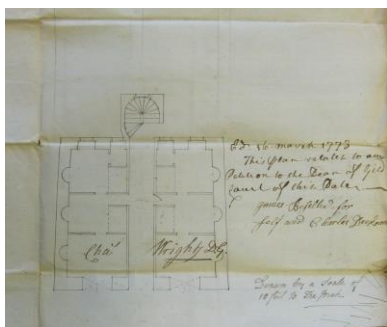 Ed 16 march 1773
This plan relates to any
Petition to the Dean of Gild
Court of this Date
James
for
self and Charles
Cha^s
Wright D.G.
Drawn by a Scale of
10 feet to the Inch